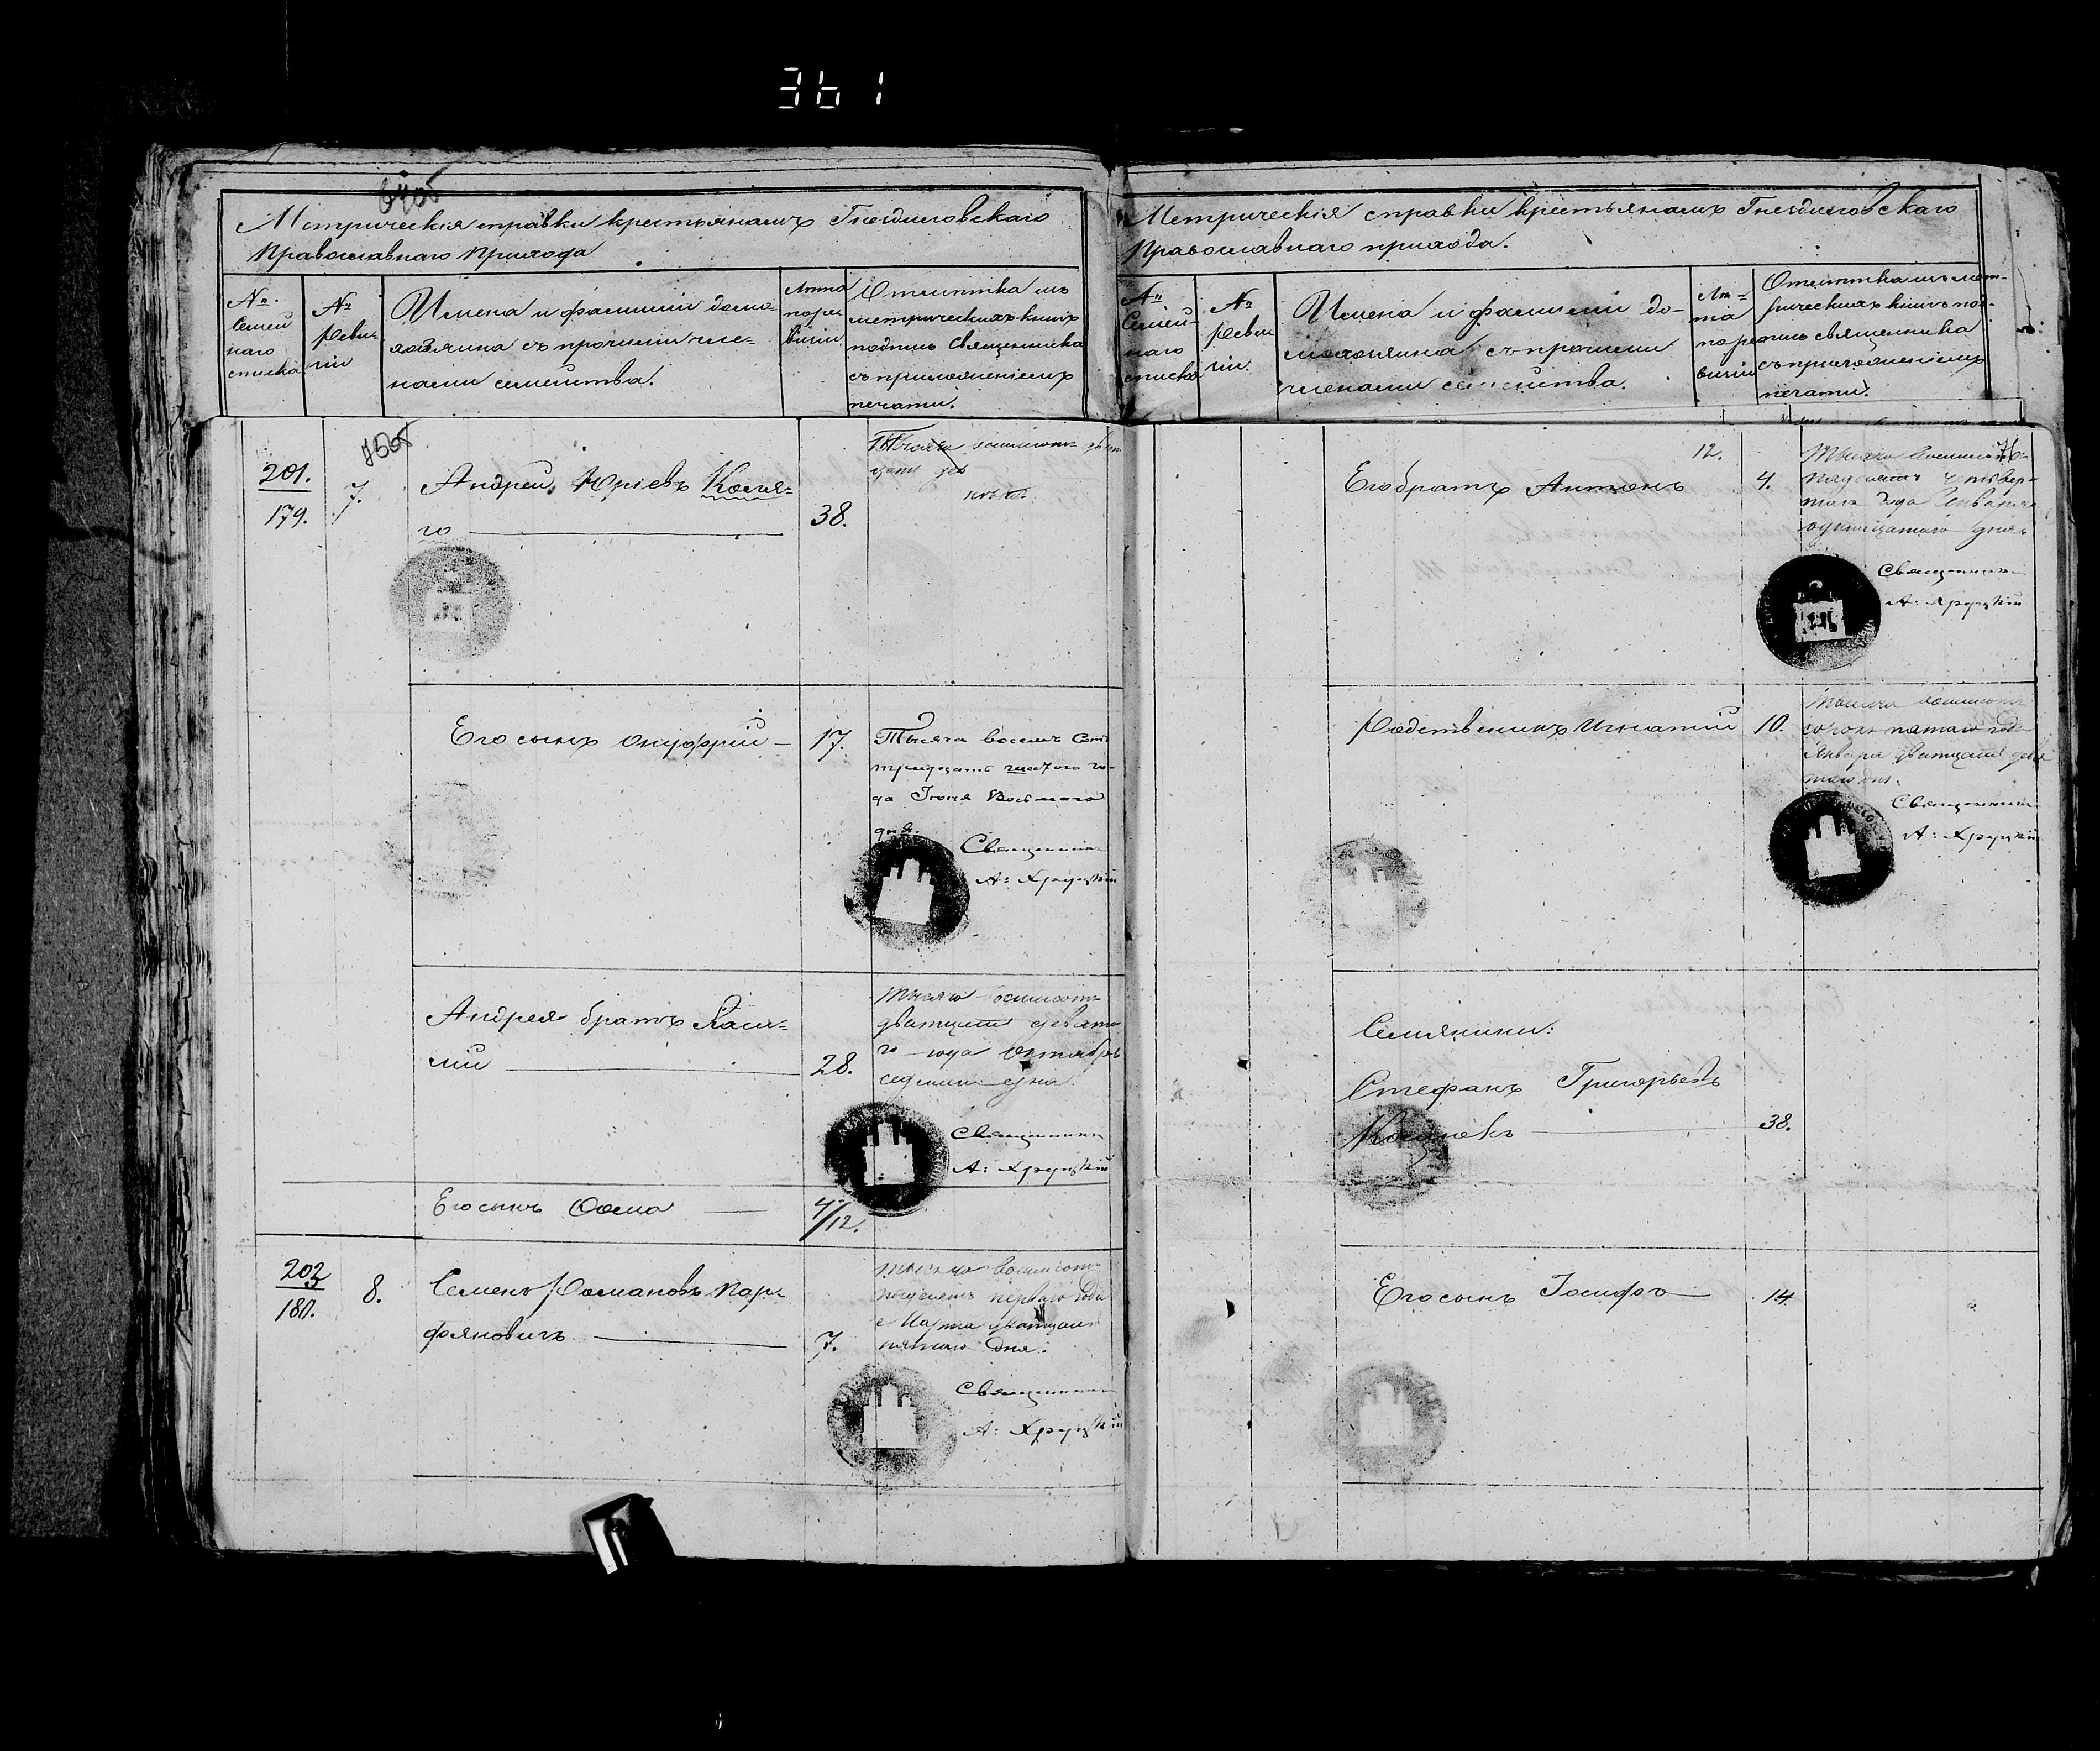 361
Метрическія справки крестьянамъ Гнездиловскаго
Православнаго Прихода
№
Семей
наго
списка
№
Реви-
зіи
Имена и фамиліи домо-
хозяина съ прочими чле-
нами семейства.
Лѣта
по ре
визіи
Отмѣтка изъ
метрическихъ книгъ
подпись Священника
съ приложеніемъ
печати.
201.
179.
7.
Андрей Юріевъ
го
38.
Тысяча восемьсот
Его сынъ Онуфрій
17.
Тысяча восемь сотъ
тридцать шестого го-
да Іюня Восьмаго
дня.
Священникъ
А: Хруцкій
Андрея братъ
28.
Тысяча восемьсотъ
двятцать девята
го года октября
седьмаго дня.
Священникъ
А: Хруцкій
Его сынъ Фома
4/12.
202
180.
8.
Семенъ Романовъ Пар-
фяновичъ
7.
Тысяча восемьсотъ
перваго года
Марта двятцать
пятаго дня.
Священникъ
А: Хруцкій
Метрическія справки крестьянамъ Гнездиловскаго
Православнаго прихода.
№
Семей-
наго
списка
№
Реви
зіи.
Имена и фамиліи до-
мохозяина съ прочими
членами семейства.
Лѣ-
та
по ре
визіи
Отмѣтка изъ мет-
рическихъ книгъ под-
пись священника
съ приложеніемъ
печати.
12.
Его братъ Антонъ
4.
Тысяча восемьсотъ
четвер-
таго года Января
дня
Священникъ
А: Хруцкій
Родственникъ Игнатій
10.
Тысяча восемьсотъ
сорокъ пятаго года
Января двятцать
Священникъ
А: Хруцкій
Семянины:
Стефанъ Григорьевъ
38.
Его сынъ Іосифъ
14.